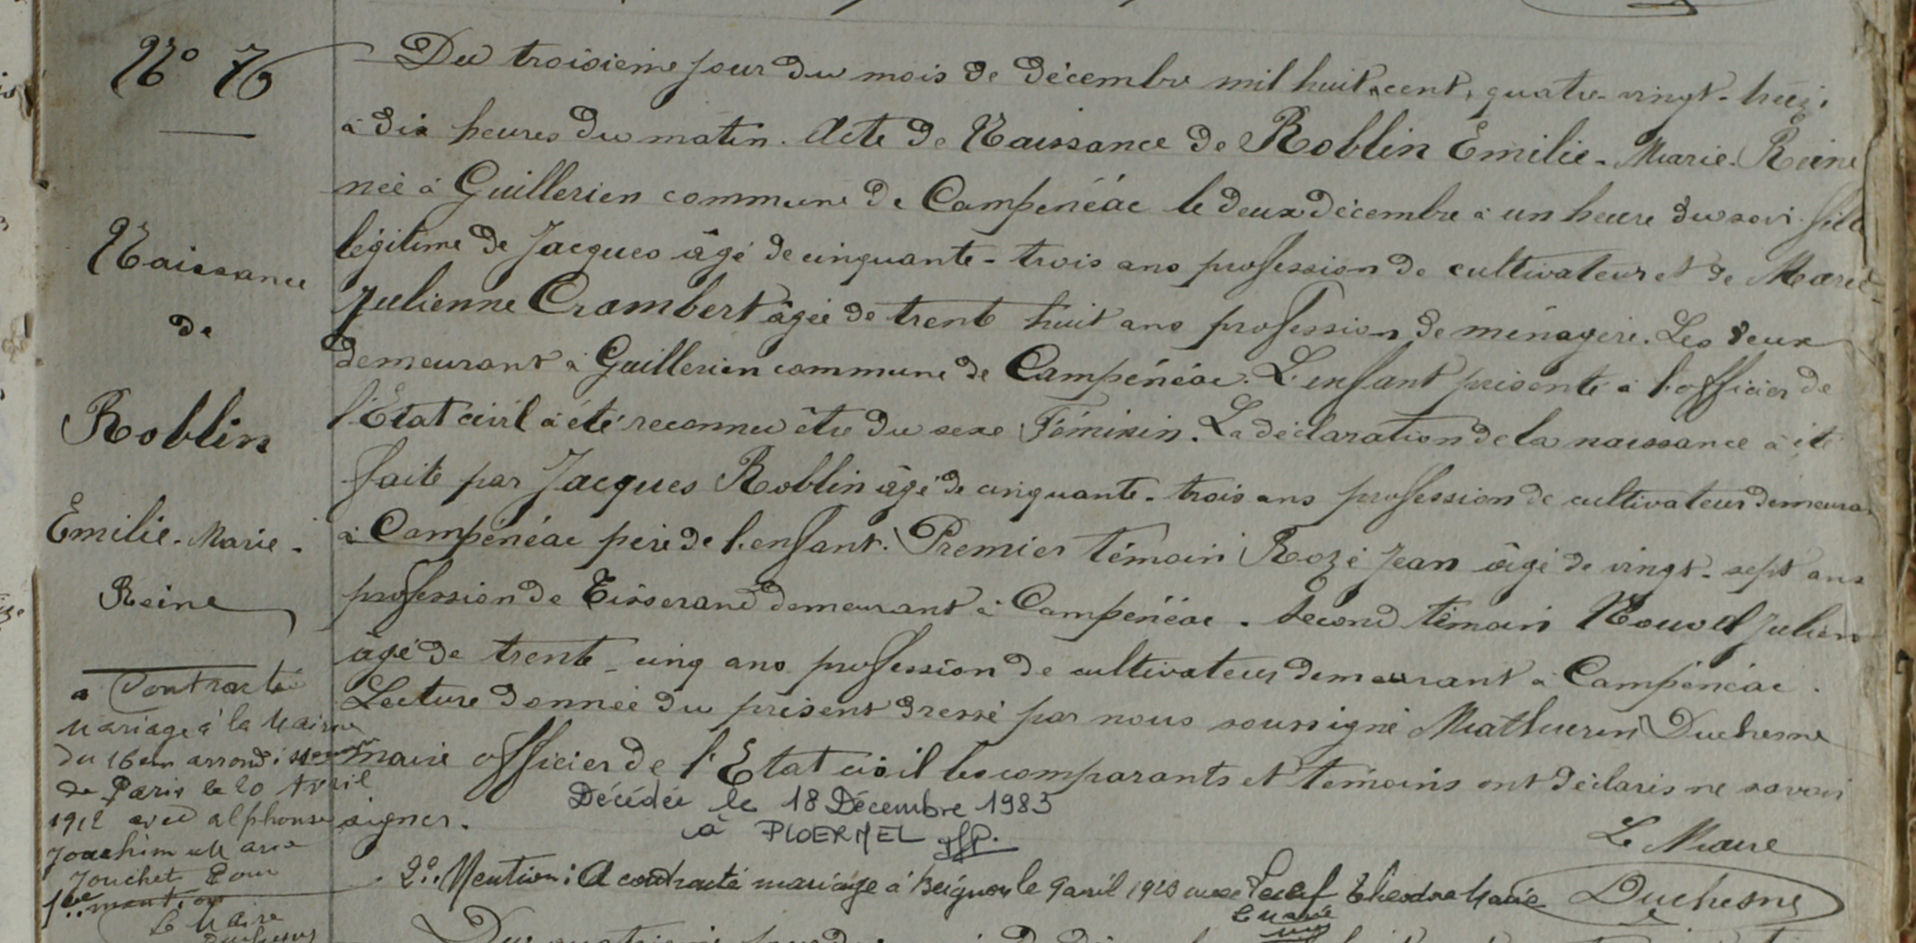 N° 76
Naissance
de
Roblin
Emilie-Marie-
Reine
a Contracté
Mariage à la Mairie
du 16em arrondissement
de Paris le 20 Avril
1912 avec alphonse
Joachim Marie
Jouchet Pour
1ère mention
Le Maire
Duchesne
Du troisième jour du mois de décembre mil huit cent, quatre-vingt-treize
à dix heures du matin. Acte de Naissance de Roblin Emilie-Marie-Reine
née à Guillerien commune de Campénéac le deux décembre à un heure du soir fille
légitime de Jacques âgé de cinquante-trois ans profession de cultivateur et de Marie-
Julienne Crambert âgée de trente huit ans profession de ménagère. Les deux
demeurant à Guillerien commune de Campénéac. L'enfant présenté à l'officier de
l'Etat civil à été reconnu être du sexe Féminin. La déclaration de la naissance à été
faite par Jacques Roblin âgé de cinquante-trois ans profession de cultivateur demeurant
à Campénéac père de l'enfant. Premier témoin Rozé Jean âgé de vingt-sept ans
profession de Tisserand demeurant à Campénéac. Second témoin Nouvel Julien
âgé de trente-cinq ans profession de cultivateur demeurant à Campénéac.
Lecture donnée du présent dressé par nous soussigné Mathurin Duchesne
maire officier de l'Etat civil les comparants et témoins ont déclarés ne savoir
signer.
Décédée le 18 Décembre 1983
à PLOERMEL
Le Maire
Duchesne
2°. Mention: A contracté mariage à Beignon le 9 avril 1920 avec Théodore Marie
Le Maire